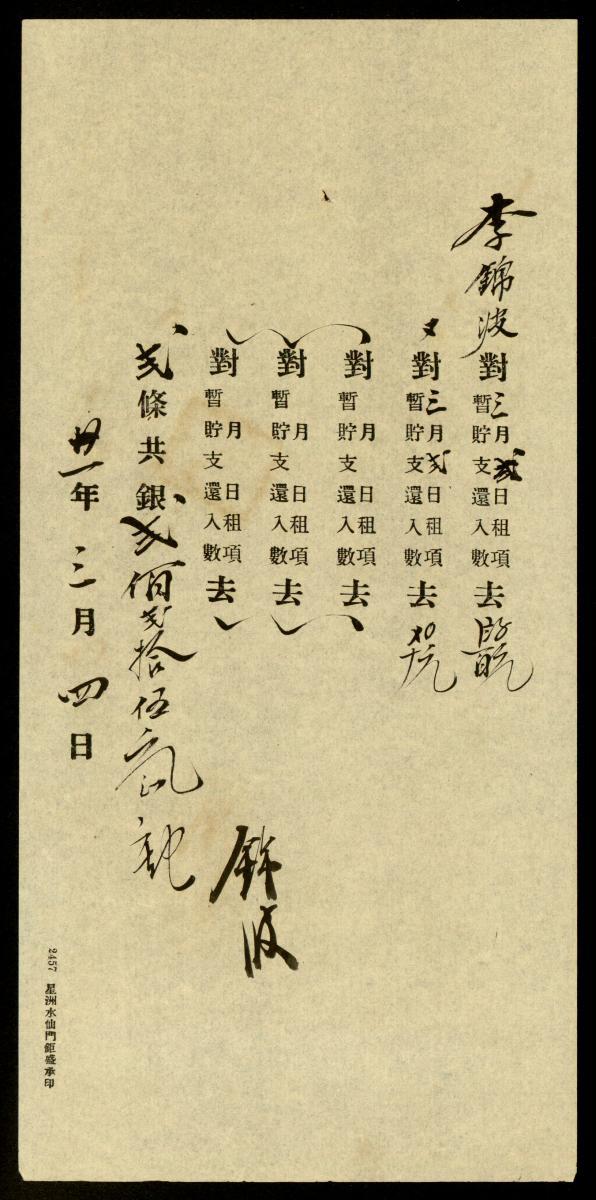 李錦波對三月弍日暫貯支還入租項數去
又對三月弍日暫貯支還入租項數去
對 月 日暫貯支還入租項數去
對 月 日暫貯支還入租項數去
對 月 日暫貯支還入租項數去
弍條共銀弍佰弍拾伍
錦波
廿一年三月四日
2457 星洲水仙門鉅盛承印